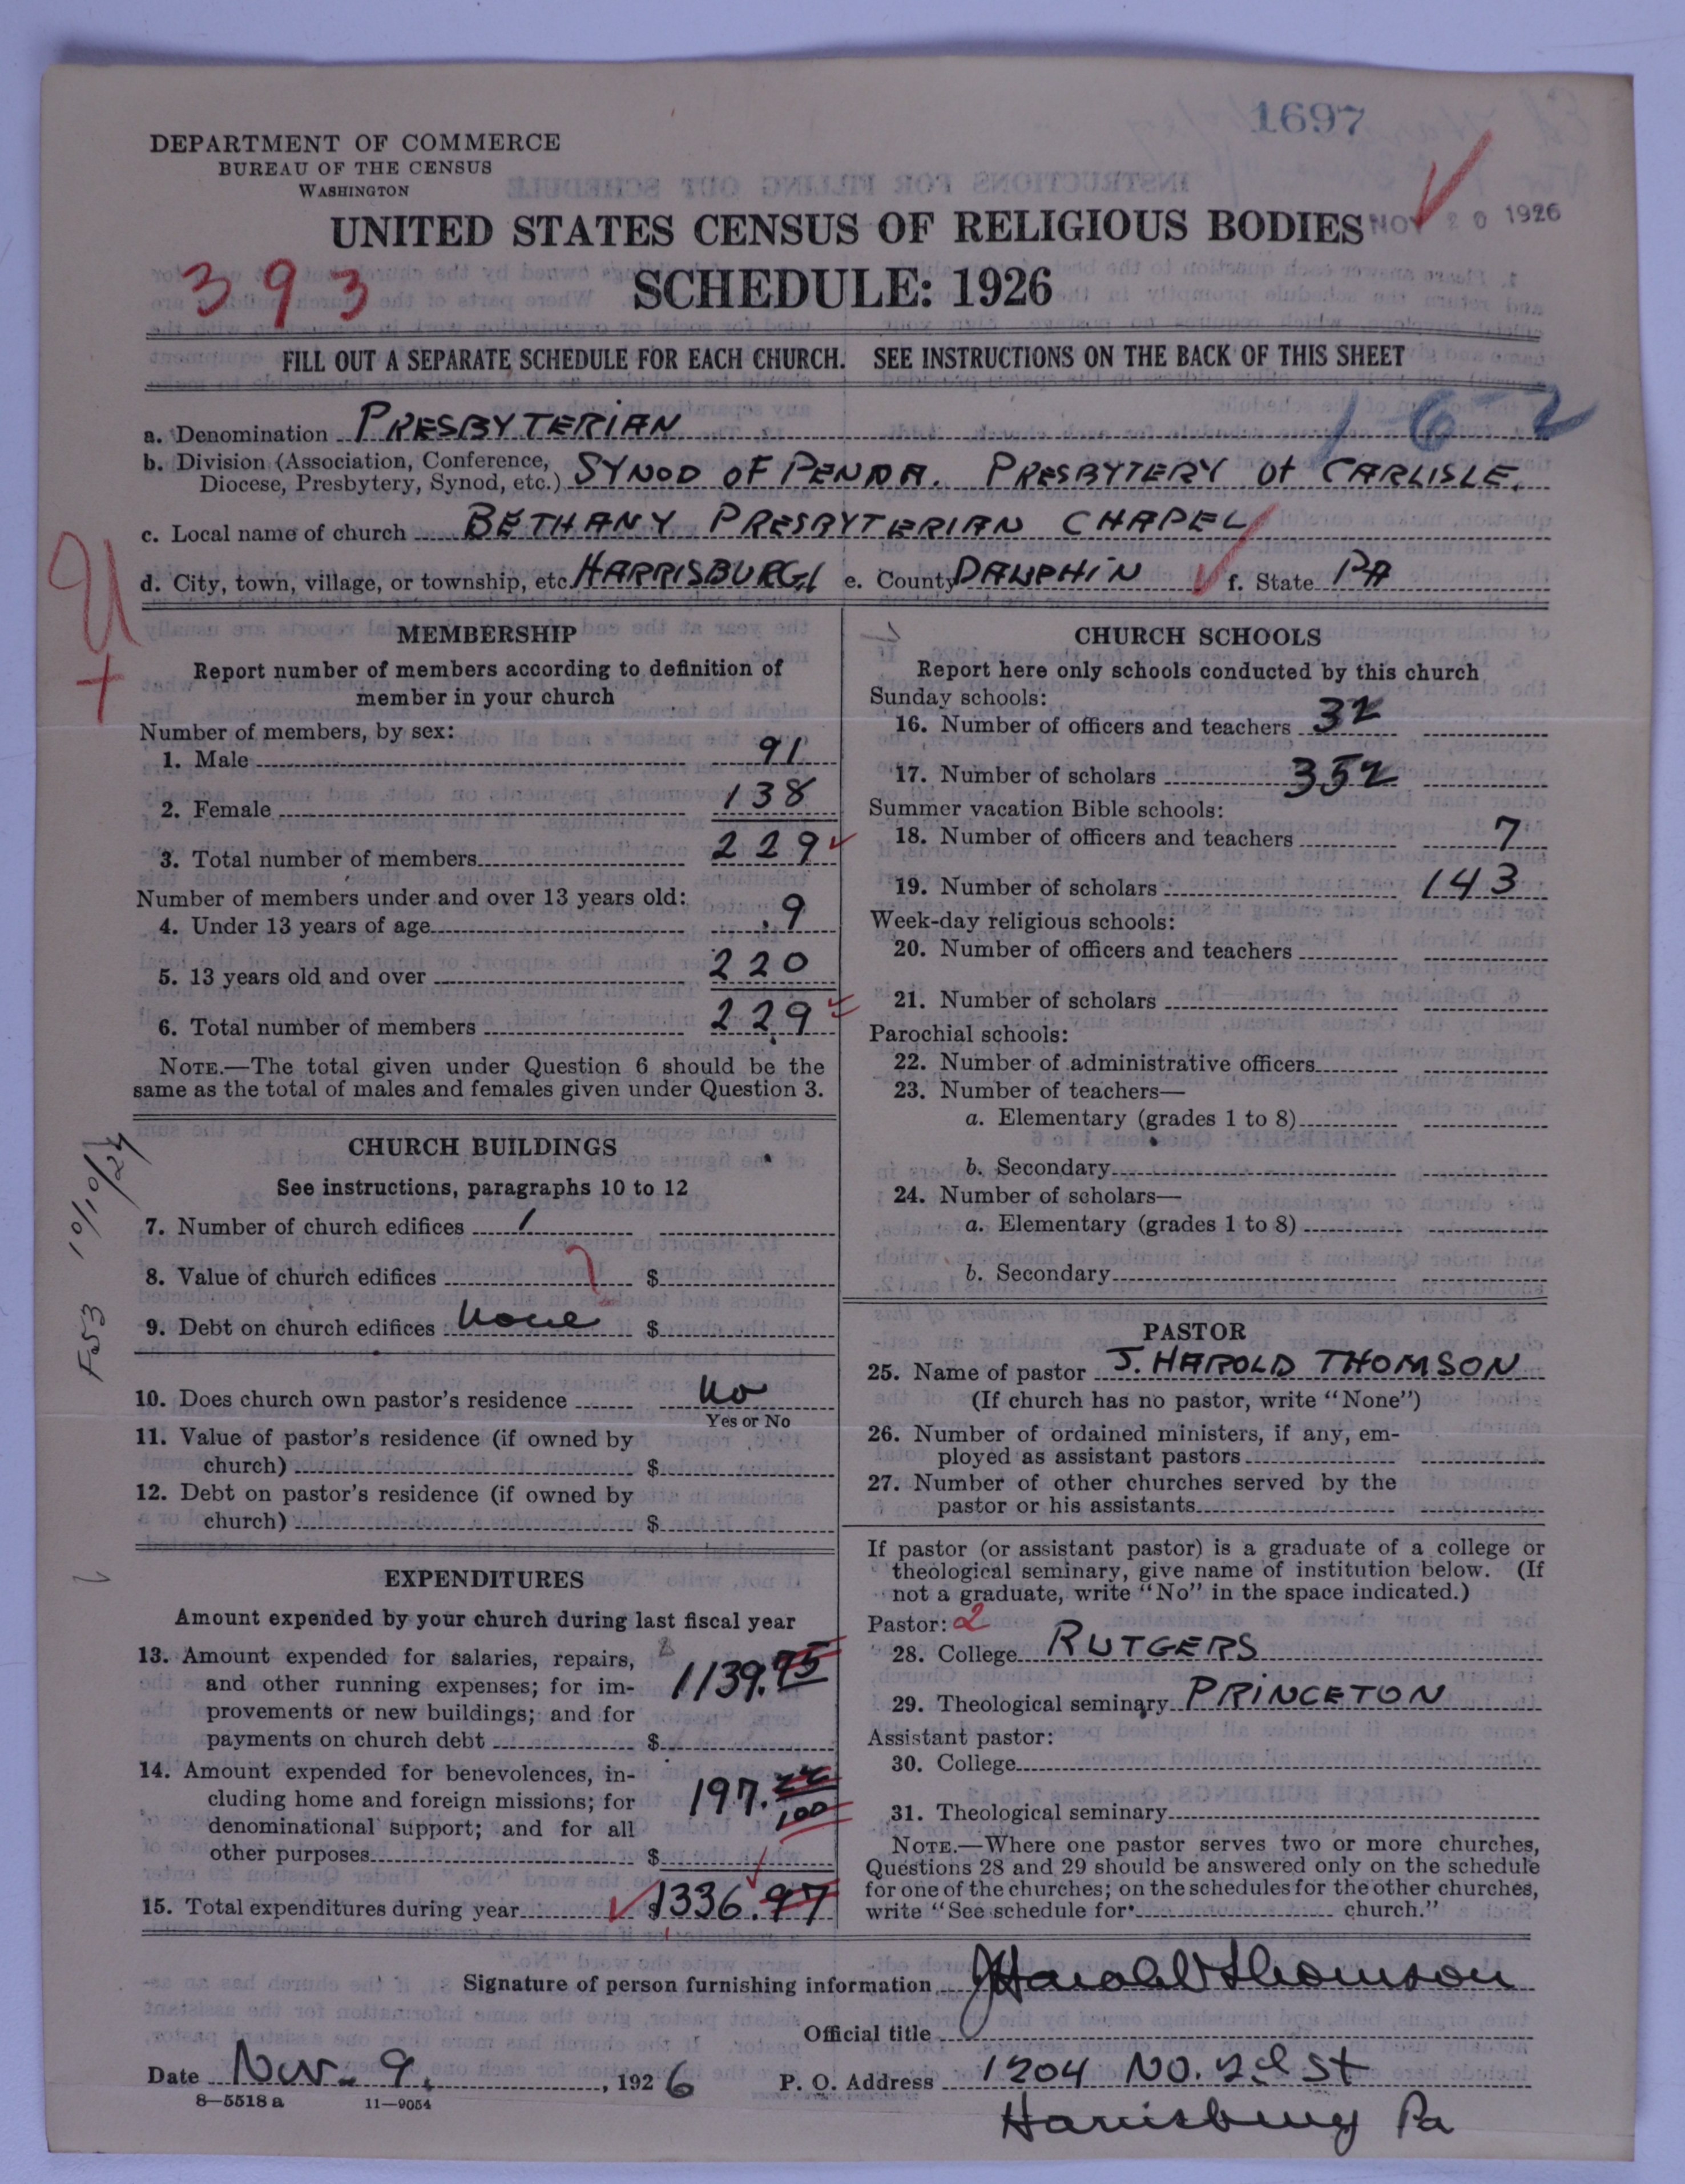 1697
DEPARTMENT OF COMMERCE
BUREAU OF THE CENSUS
WASHINGTON
UNITED STATES CENSUS OF RELIGIOUS BODIES
NOV 20 1926
393
SCHEDULE: 1926
FILL OUT A SEPARATE SCHEDULE FOR EACH CHURCH. SEE INSTRUCTIONS ON THE BACK OF THIS SHEET
1-6-2
a. Denomination PRESBYTERIAN
b. Division (Association, Conference,
Diocese, Presbytery, Synod, etc.) SYNOD OF PENNA. PRESBYTERY of CARLISLE.
c. Local name of church BETHANY PRESBYTERIAN CHAPEL
d. City, town, village, or township, etc. HARRISBURG e. County DAUPHIN f. State PA
MEMBERSHIP
Report number of members according to definition of
member in your church
Number of members, by sex:
1. Male 91
2. Female 138
3. Total number of members 229
Number of members under and over 13 years old:
4. Under 13 years of age 9
5. 13 years old and over 220
6. Total number of members 229
NOTE.—The total given under Question 6 should be the
same as the total of males and females given under Question 3.
CHURCH BUILDINGS
See instructions, paragraphs 10 to 12
7. Number of church edifices 1
8. Value of church edifices $
9. Debt on church edifices None $
10. Does church own pastor's residence No
Yes or No
11. Value of pastor's residence (if owned by
church) $
12. Debt on pastor's residence (if owned by
church) $
F53 10/10/27
EXPENDITURES
Amount expended by your church during last fiscal year
13. Amount expended for salaries, repairs,
and other running expenses; for im-
provements or new buildings; and for
payments on church debt $ 1139.75
14. Amount expended for benevolences, in-
cluding home and foreign missions; for
denominational support; and for all
other purposes $ 197.22/100
15. Total expenditures during year $1336.97
CHURCH SCHOOLS
Report here only schools conducted by this church
Sunday schools:
16. Number of officers and teachers 32
17. Number of scholars 352
Summer vacation Bible schools:
18. Number of officers and teachers 7
19. Number of scholars 143
Week-day religious schools:
20. Number of officers and teachers
21. Number of scholars
Parochial schools:
22. Number of administrative officers
23. Number of teachers—
a. Elementary (grades 1 to 8)
b. Secondary
24. Number of scholars—
a. Elementary (grades 1 to 8)
b. Secondary
PASTOR
25. Name of pastor J. HAROLD THOMSON
(If church has no pastor, write "None")
26. Number of ordained ministers, if any, em-
ployed as assistant pastors
27. Number of other churches served by the
pastor or his assistants
If pastor (or assistant pastor) is a graduate of a college or
theological seminary, give name of institution below. (If
not a graduate, write "No" in the space indicated.)
Pastor: 2
28. College RUTGERS
29. Theological seminary PRINCETON
Assistant pastor:
30. College
31. Theological seminary
NOTE.—Where one pastor serves two or more churches,
Questions 28 and 29 should be answered only on the schedule
for one of the churches; on the schedules for the other churches,
write "See schedule for church."
Signature of person furnishing information J Harold Thomson
Official title
Date Nov. 9, 1926 P. O. Address 1204 No. 2d St
8—5518 a 11—9054
Harrisburg Pa